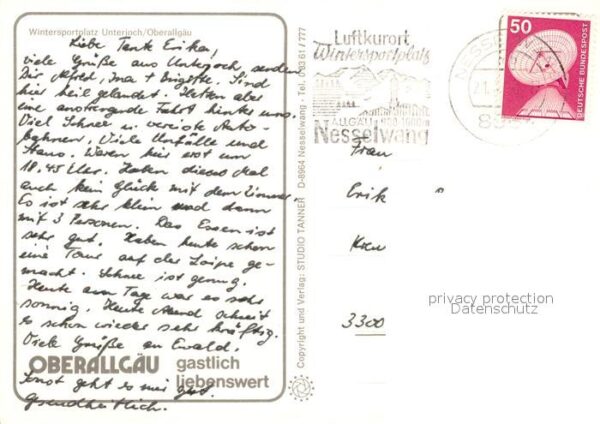 Wintersportplatz Unterjoch/Oberallgäu
Liebe Tante Erika,
viele Grüße aus Unterjoch, senden
Dir Alfred, Ina + Brigitte. Sind
hier heil gelandet. Hatten aber
eine anstrengende Fahrt hinter uns.
Viel Schnee u. vereiste Auto-
bahnen, Viele Unfälle und
Staus. Waren hier erst um
18.45 Uhr. Haben dieses Mal
auch kein Glück mit dem Zimmer.
Es ist sehr klein und dann
mit 3 Personen. Das Essen ist
sehr gut. Haben heute schon
eine Tour auf der Loipe ge-
macht. Schnee ist genug.
Heute am Tage war es sehr
sonnig. Heute Abend schneit
es schon wieder sehr kräftig.
Viele Grüße an Ewald.
OBERALLGÄU gastlich
liebenswert
Sonst geht es mir gut.
gesundheitlich.
Copyright und Verlag: STUDIO TANNER D-8964 Nesselwang - Tel. 0 83 61 / 777
Luftkurort
Wintersportplatz
ALLGÄU 900-1600m
Nesselwang
NESSELWANG
21.
89
50
DEUTSCHE BUNDESPOST
Frau
Erik
Kru
3300
privacy protection
Datenschutz